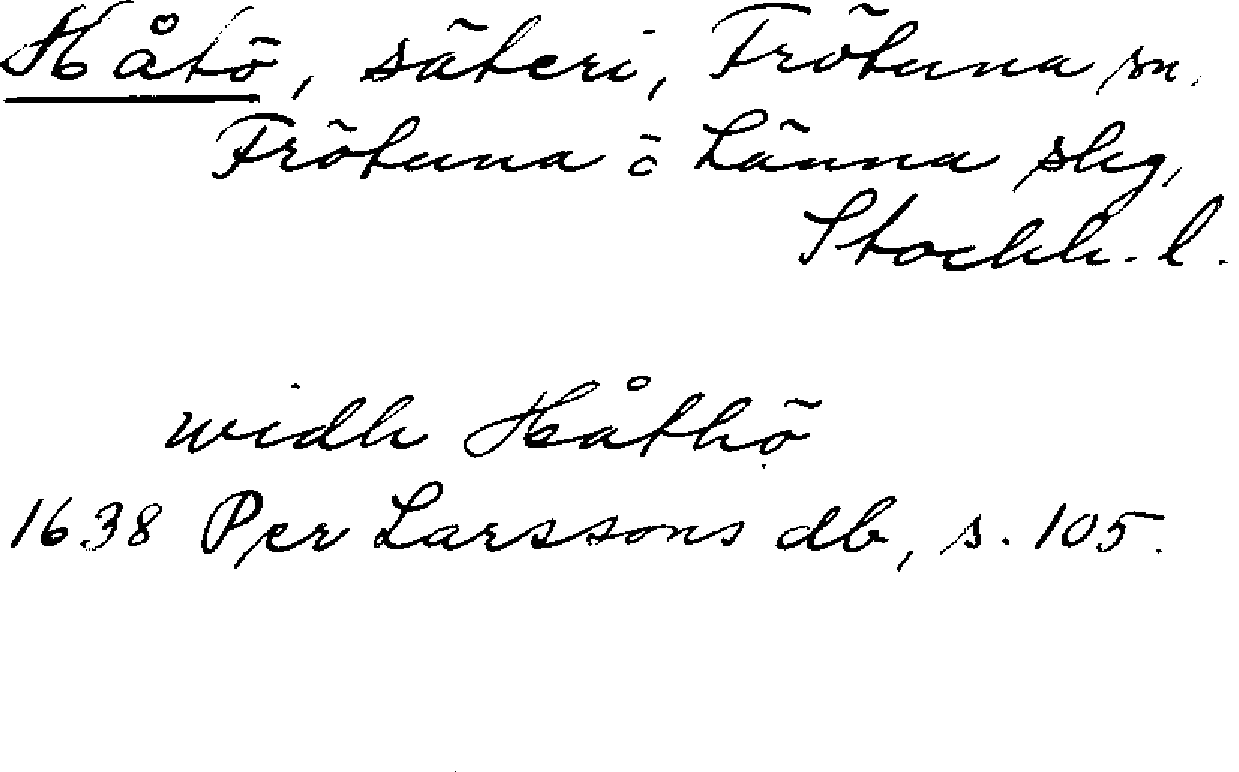 Håtö, säteri, Frötuna sn.
Frötuna o Länna skg,
Stockh. l.
widh Håthö
1638 Per Larssons db, s. 105.